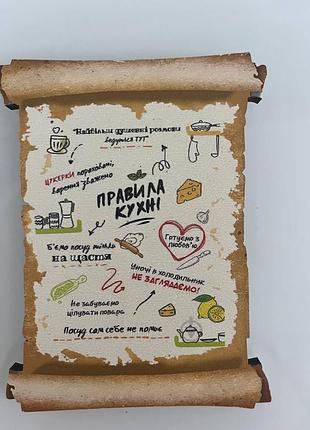 Найбільш душевні розмови
ведуться ТУТ
ЦУКЕРКИ пораховані,
варення зважено
ПРАВИЛА
КУХНІ
Готуємо з
любов'ю
Б'ємо посуд тільки
на щастя
Уночі в холодильник
НЕ ЗАГЛЯДАЄМО!
Не забуваємо
цілувати повара
Посуд сам себе не помиє